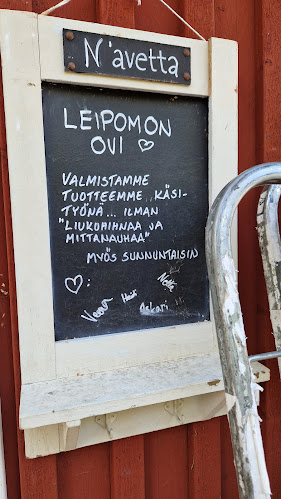 N'avetta
LEIPOMON
OVI ♡
VALMISTAMME
TUOTTEEMME KÄSI-
TYÖNÄ... ILMAN
"LIUKUHIHNAA JA
MITTANAUHAA"
MYÖS SUNNUNTAISIN
♡:
Askari